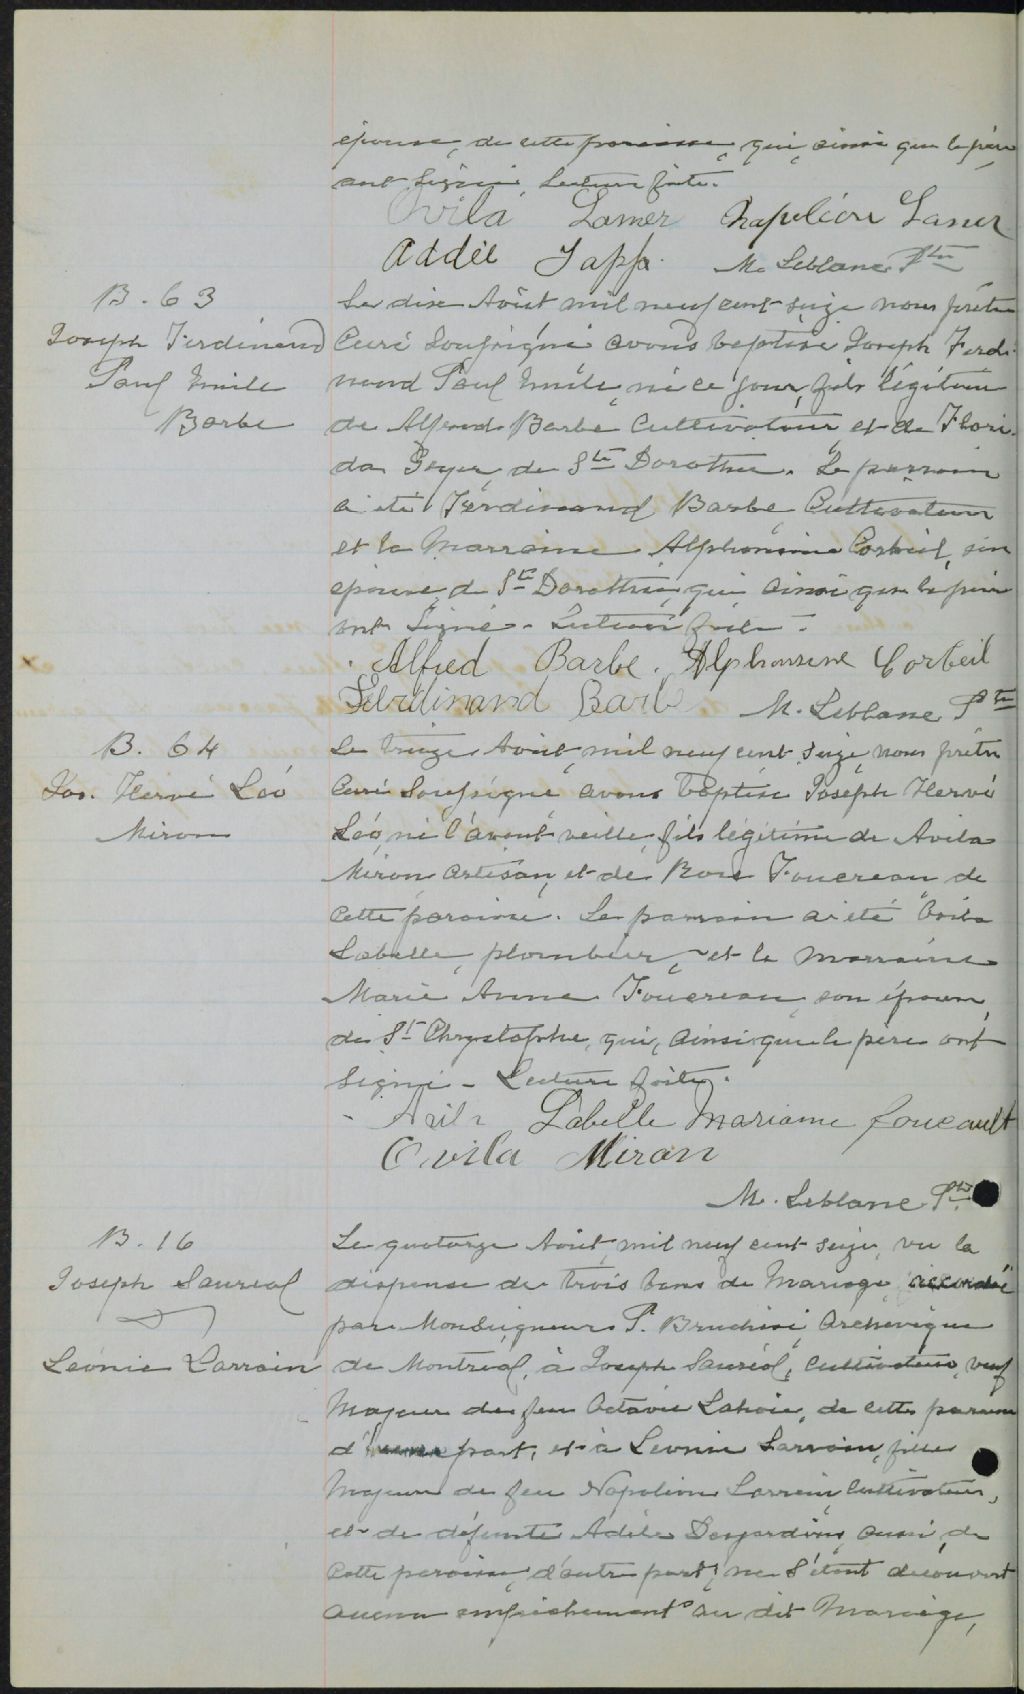 épouse, de cette paroisse, qui, ainsi que le père
ont signé. Lecture faite.
Ovila Lamer Napoléon Lamer
Addée Japp. M. Leblanc Ptre
B. 63
Joseph Ferdinand
Paul Emile
Barbe
Le dix Août mil neuf cent seize nous prêtre
Curé soussigné avons baptisé Joseph Ferdi-
nand Paul Emile né ce jour, fils légitime
de Alfred Barbe Cultivateur et de Flori-
da de Ste Dorothée. Le parrain
a été Ferdinand Barbe Cultivateur
et la Marraine Alphonsine Corbeil, son
épouse, de Ste Dorothée, qui ainsi que le père
ont signé. Lecture faite.
Alfred Barbe. Alphonsene Corbeil
Ferdinand Barbe M. Leblanc Ptre
B. 64
Jos. Hervé Léo
Miron
Le treize Août, mil neuf cent seize, nous prêtre
Curé soussigné avons baptisé Joseph Hervé
Léo, né l'avant veille, fils légitime de Avila
Miron, artisan, et de Rose Foucreau, de
cette paroisse. Le parrain a été
Labelle, plombier, et la marraine
Marie Anne Foucreau, son épouse,
de St Chrystophe, qui, ainsi que le père ont
signé - Lecture faite.
Avila Labelle Marianne foucault
Ovila Miron
M. Leblanc Ptre
B. 16
Joseph Sauréol
&
Léonie Larrain
Le quatorze Août, mil neuf cent seize, vu la
dispense de trois bans de Mariage, accordée
par Monseigneur P. Bruchési, Archevêque
de Montréal, à Joseph Sauréol, cultivateur, veuf
Majeur de feu Octavie Lahaie, de cette paroisse
d'une part, et à Léonie Larrain, fille
Majeure de feu Napoléon Larrain Cultivateur,
et de défunte Adèle Desjardins, aussi de
cette paroisse, d'autre part, ne s'étant découvert
aucun empêchement au dit Mariage,